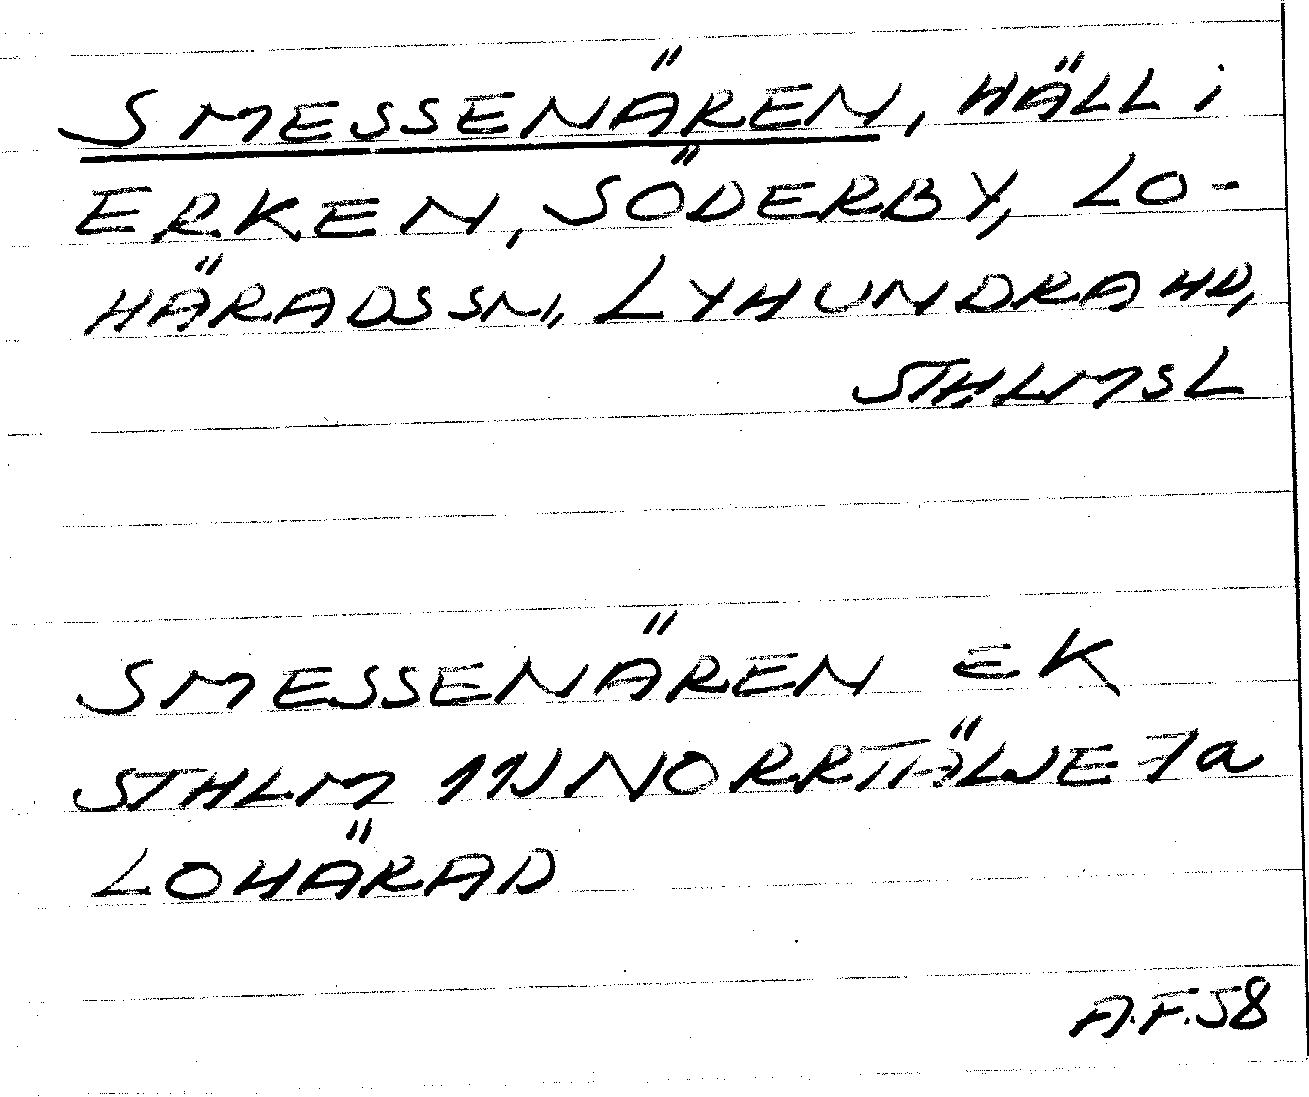 SMESSENÄREN, HÄLL i
ERKEN, SÖDERBY, LO-
HÄRADSSN, LYHUNDRAHD,
STHLMSL
SMESSENÄREN EK
STHLM 11J NORRTÄLJE 7a
LOHÄRAD
A.F.58